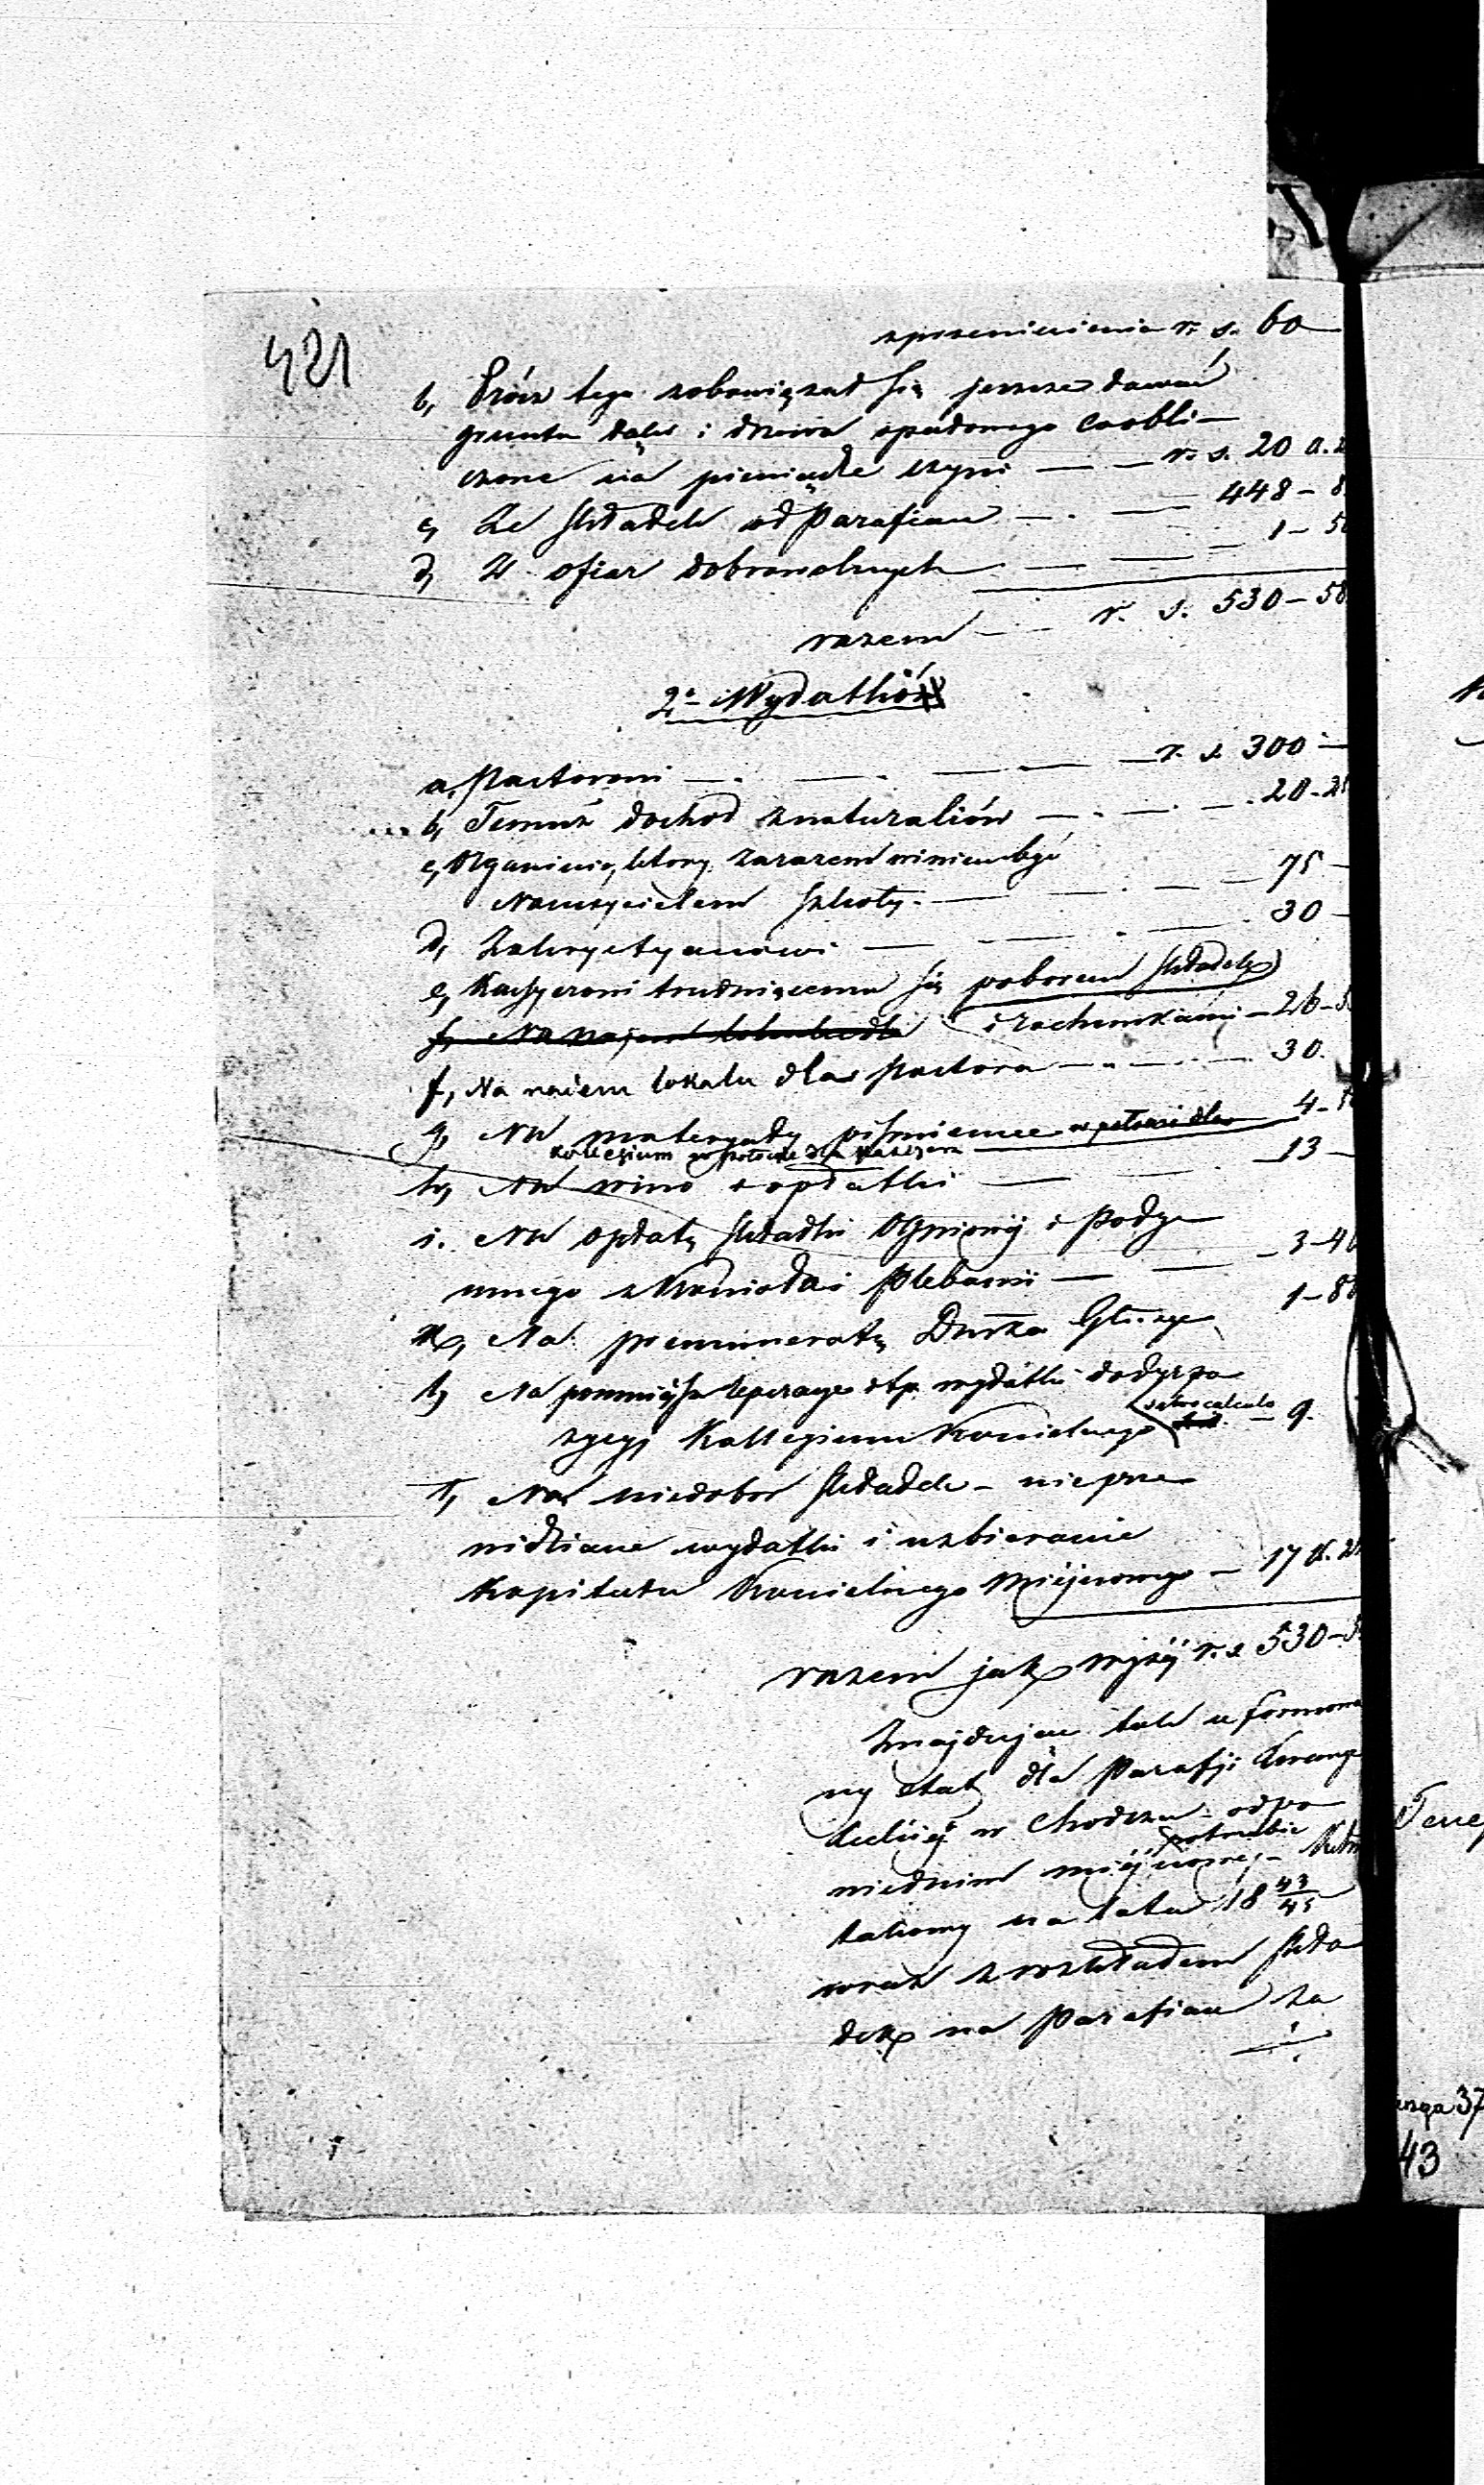 421
zprzeniesienia r. s. 60
b, Prócz tego zobowiązał się jeszcze dawać
gruntu dał i drzewa opałowego co obli-
czone na pieniądze czyni — — r. s. 20
c, Ze składek od Parafian — . — 448 - 8
d, Z ofiar dobrowolnych — — 1 - 50
razem — r. s. 530 - 58
2° Wydatków
a, Pastorowi — . — . — r. s. 300 —
b, Temuż dochod z naturaliów — . — . 20 - 25
c, Organiście, ktory zarazem winien być
Nauczycielem szkoły. — . — 75 —
d, Zakrystyanowi — — . — 30 —
e, Kassyerowi trudniącemu się poborem składek
i rachunkami — 26 -
f, Na najem lokalu dla
f, Na najem lokalu dla Pastora — . — 30.
g, Na materyały piśmienne w połowie dla 4 -
Kollegium w połowie dla Kassyera
h, Na wino i opłatki — — 13 —
i. Na opłatę składki Ogniowej i Pody-
mnego z Kościoła i Plebanii — — 3 - 40
k, Na prenumeratę Dzien. Gł.
ł, Na pomniejsze reperacye itp. wydatki do dyspo
zycyi Kollegium Kościelnego salvo calculo — 9.
1 - 8
T, Na niedobor składek - nieprze
widziane wydatki i uzbieranie
Kapitału Kościelnego Miejscowego — 17 k. 2
razem jak wyżej r. s. 530 -
Znajdując tak uformowa
ny etat dla Parafji Ewange
lickiej w Chodczu odpo
wiednim miejscowej potrzebie
na lata 18 43/45
wraz z rozkładem skła
dek na Parafian za
43